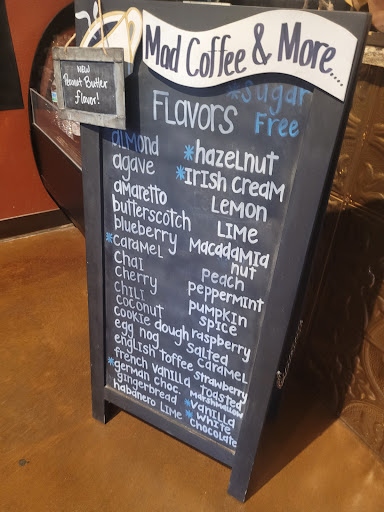 Mad Coffee & More....
NEW
Peanut Butter
flavor!
*Sugar
Free
FLavors
almond
agave
amaretto
butterscotch
blueberry
*caramel
chai
cherry
chili
coconut
cookie dough
egg nog
english toffee
french vanilla
*german choc.
gingerbread
habanero lime
*hazelnut
*Irish cream
Lemon
Lime
Macadamia
nut
peach
peppermint
pumpkin
spice
raspberry
salted
caramel
strawberry
toasted
marshmallow
*vanilla
*white
chocolate